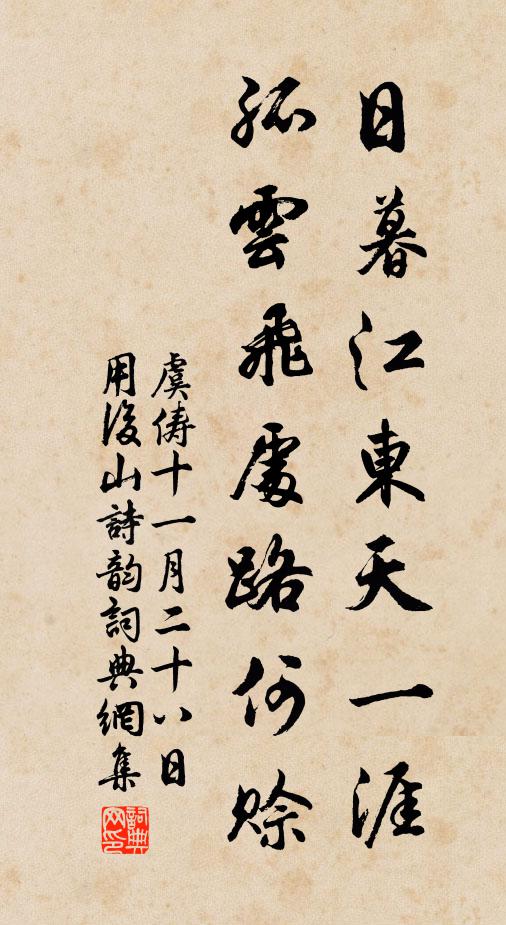 日暮江東天一涯
孤雲飛處路何賒
虞儔十一月二十八日
用後山詩韵詞典網集
詞典网印